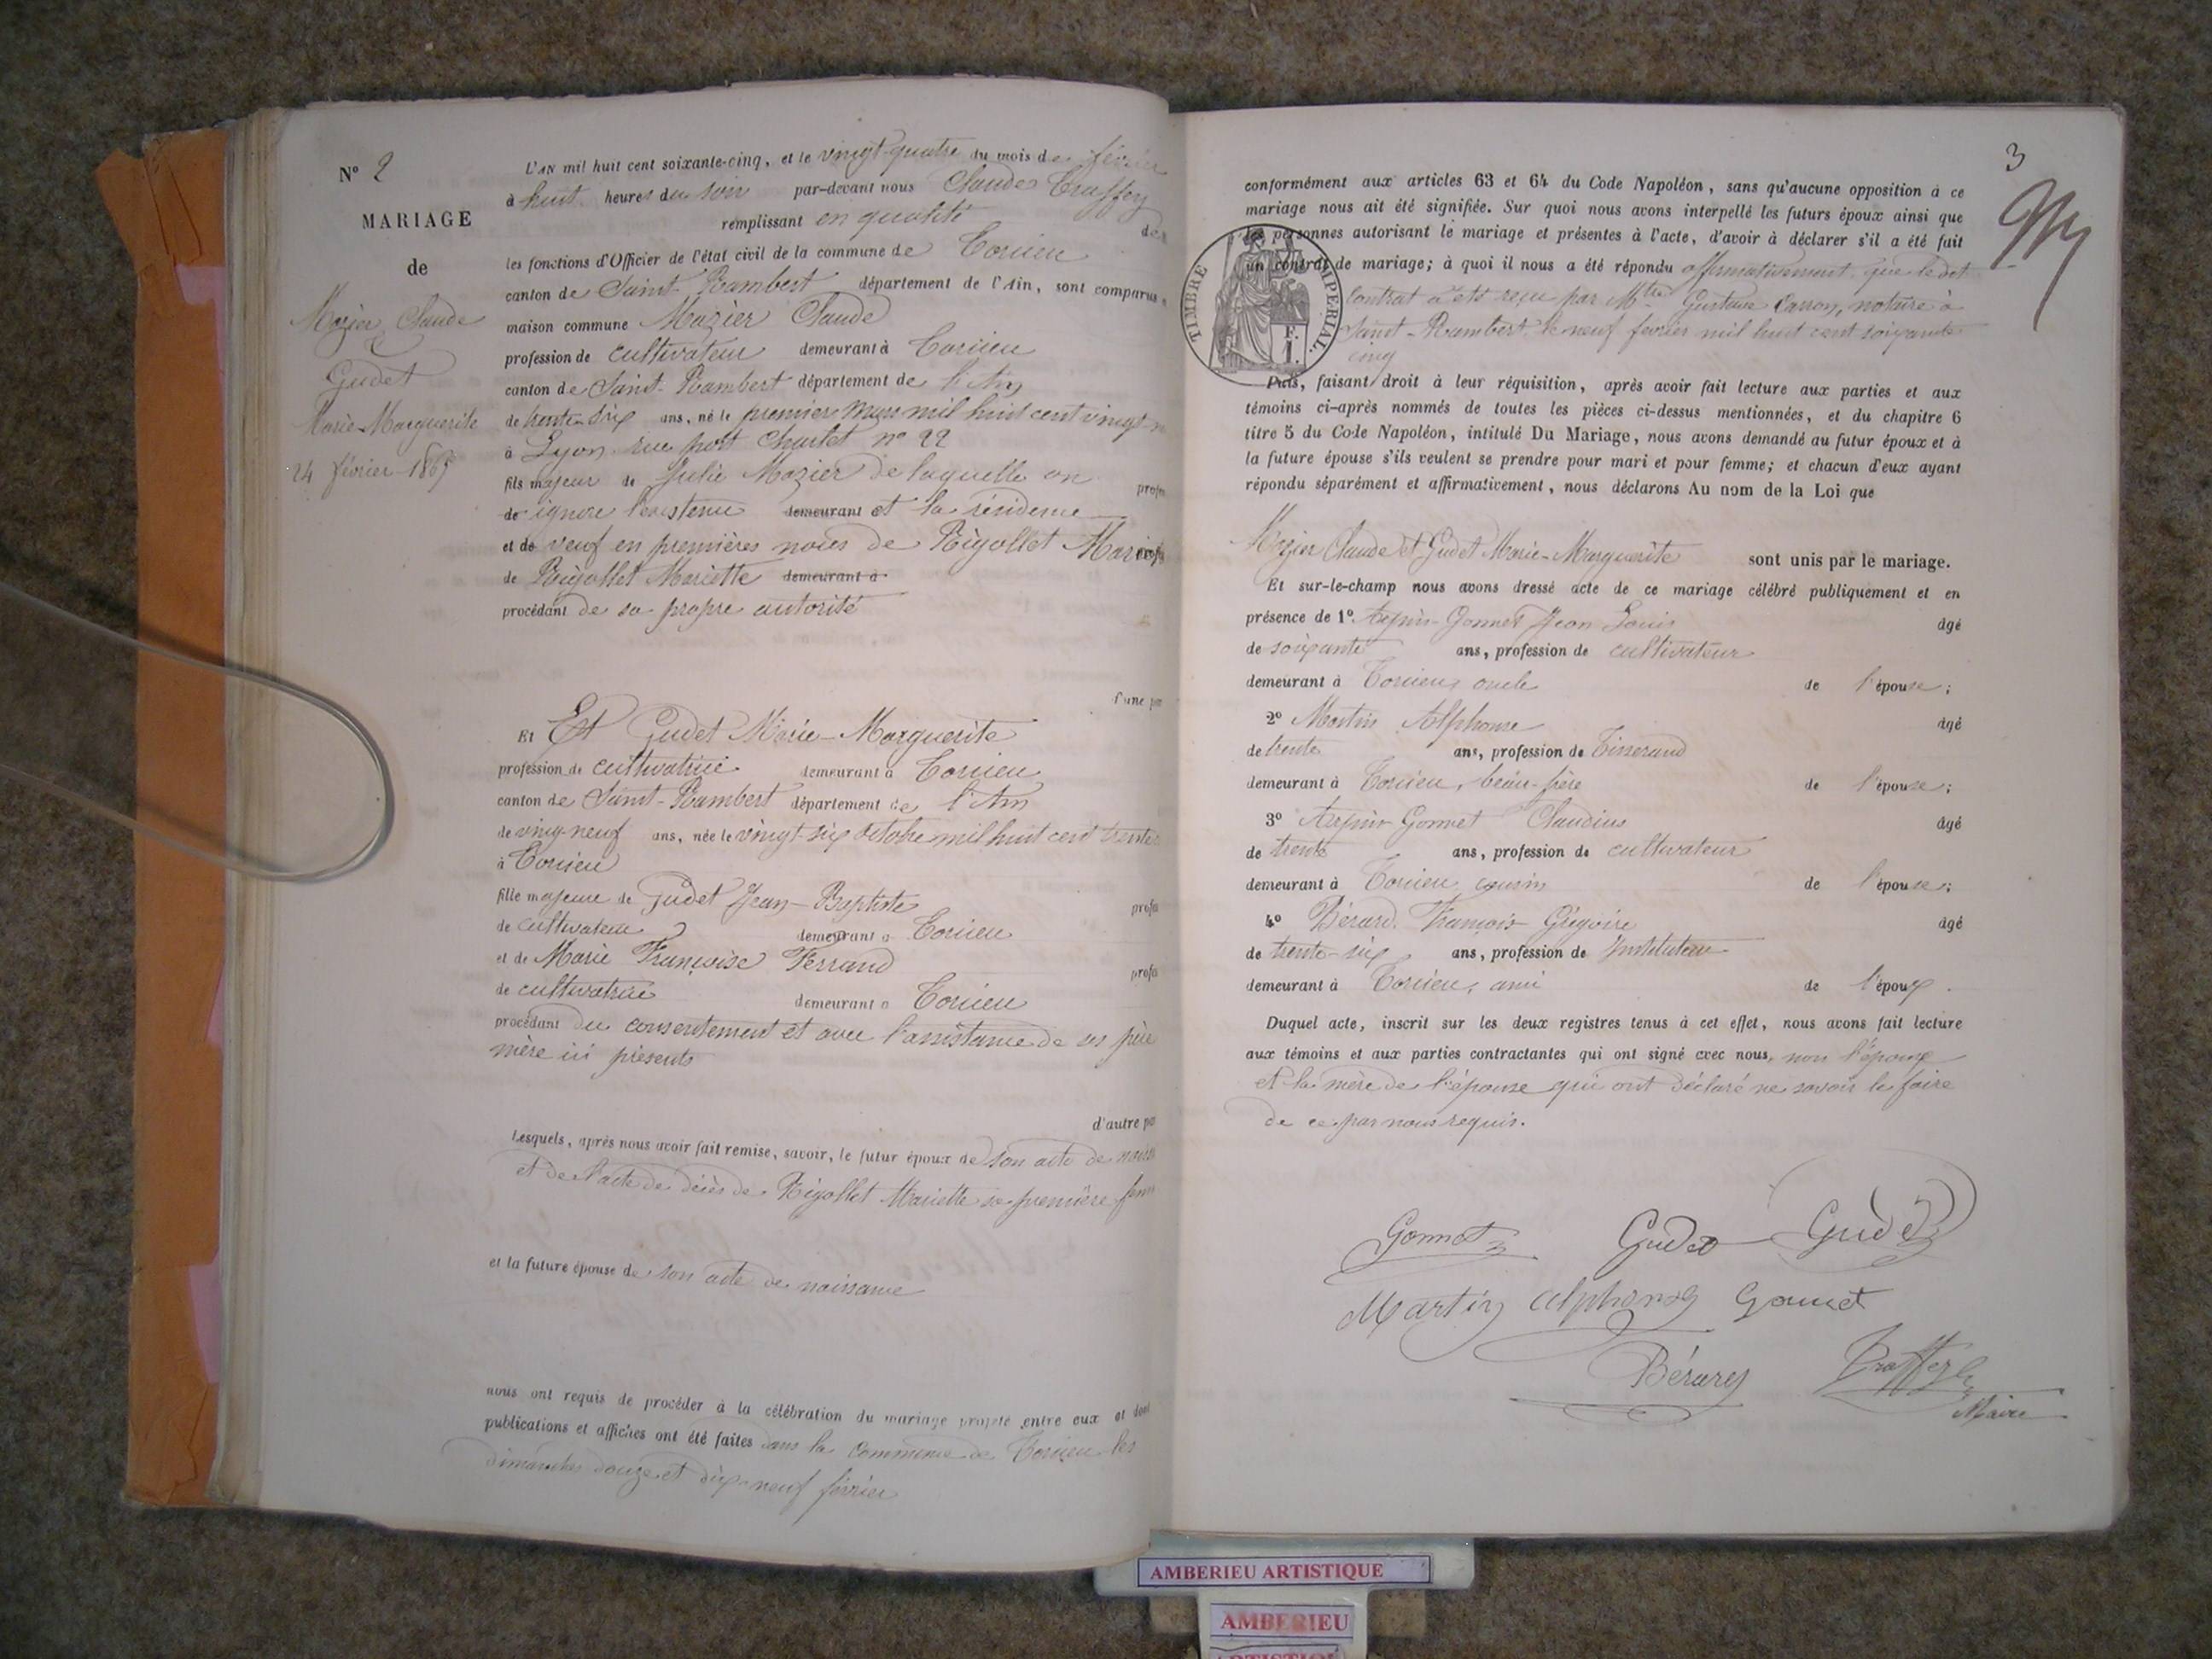 N° 2
MARIAGE
de
Mozier Claude
&
Gudet
Marie-Marguerite
24 février 1865
L'AN mil huit cent soixante-cinq, et le vingt-quatre du mois de février
à huit heures du soir par-devant nous Claude Traffey
remplissant en qualité de
les fonctions d'Officier de l'état civil de la commune de Torcieu
canton de Saint-Rambert département de l'Ain, sont comparus
maison commune Mozier Claude
profession de cultivateur demeurant à Torcieu
canton de Saint-Rambert département de l'Ain
de trente-six ans, né le premier Mars mil huit cent vingt
à Lyon rue port Charlet n° 22
fils majeur de Julie Mozier de laquelle on profes
de ignore l'existence demeurant et la résidence
et de veuf en premières noces de Rigollet Mari
de Rigollet Mariette demeurant à
procédant de sa propre autorité
l'une par
Et Et Gudet Marie-Marguerite
profession de cultivatrice demeurant à Torcieu
canton de Saint-Rambert département de l'Ain
de vingt-neuf ans, née le vingt-six octobre mil huit cent trente
à Torcieu
fille majeure de Gudet Jean-Baptiste profes
de cultivateur demeurant à Torcieu
et de Marie Françoise Ferrand profes
de cultivatrice demeurant à Torcieu
procédant du consentement et avec l'assistance de ses père
mère ici présents
d'autre par
Lesquels, après nous avoir fait remise, savoir, le futur époux de son acte de naiss
et de l'acte de décès de Rigollet Mariette sa première fem
et la future épouse de son acte de naissance
nous ont requis de procéder à la célébration du mariage projeté entre eux et dont
publications et affiches ont été faites dans la commune de Torcieu les
dimanches douze et dix-neuf février
3
conformément aux articles 63 et 64 du Code Napoléon, sans qu'aucune opposition à ce
mariage nous ait été signifiée. Sur quoi nous avons interpellé les futurs époux ainsi que
les personnes autorisant le mariage et présentes à l'acte, d'avoir à déclarer s'il a été fait
un contrat de mariage; à quoi il nous a été répondu affirmativement que le dit
contrat a été reçu par Mtre Gustave notaire à
Saint-Rambert le neuf février mil huit cent soixante
cinq
TIMBRE IMPERIAL.
F.
1.
Puis, faisant droit à leur réquisition, après avoir fait lecture aux parties et aux
témoins ci-après nommés de toutes les pièces ci-dessus mentionnées, et du chapitre 6
titre 5 du Code Napoléon, intitulé Du Mariage, nous avons demandé au futur époux et à
la future épouse s'ils veulent se prendre pour mari et pour femme; et chacun d'eux ayant
répondu séparément et affirmativement, nous déclarons Au nom de la Loi que
Mozier Claude et Gudet Marie-Marguerite sont unis par le mariage.
Et sur-le-champ nous avons dressé acte de ce mariage célébré publiquement et en
présence de 1° Arpin-Gonnet Jean Louis âgé
de soixante ans, profession de cultivateur
demeurant à Torcieu, oncle de l'épouse;
2° Martin Alphonse âgé
de trente ans, profession de Tisserand
demeurant à Torcieu, beau-frère de l'épouse;
3° Arpin-Gonnet Claudius âgé
de trente ans, profession de cultivateur
demeurant à Torcieu cousin de l'épouse;
4° Bérard François-Grégoire âgé
de trente-six ans, profession de Instituteur
demeurant à Torcieu, ami de l'époux.
Duquel acte, inscrit sur les deux registres tenus à cet effet, nous avons fait lecture
aux témoins et aux parties contractantes qui ont signé avec nous, non l'époux
et la mère de l'épouse qui ont déclaré ne savoir le faire
de ce par nous requis.
Gonnet Gudet Gudet
Martin alphonse Gonnet
Bérard Traffey
Maire
AMBERIEU ARTISTIQUE
AMBERIEU
ARTISTIQUE